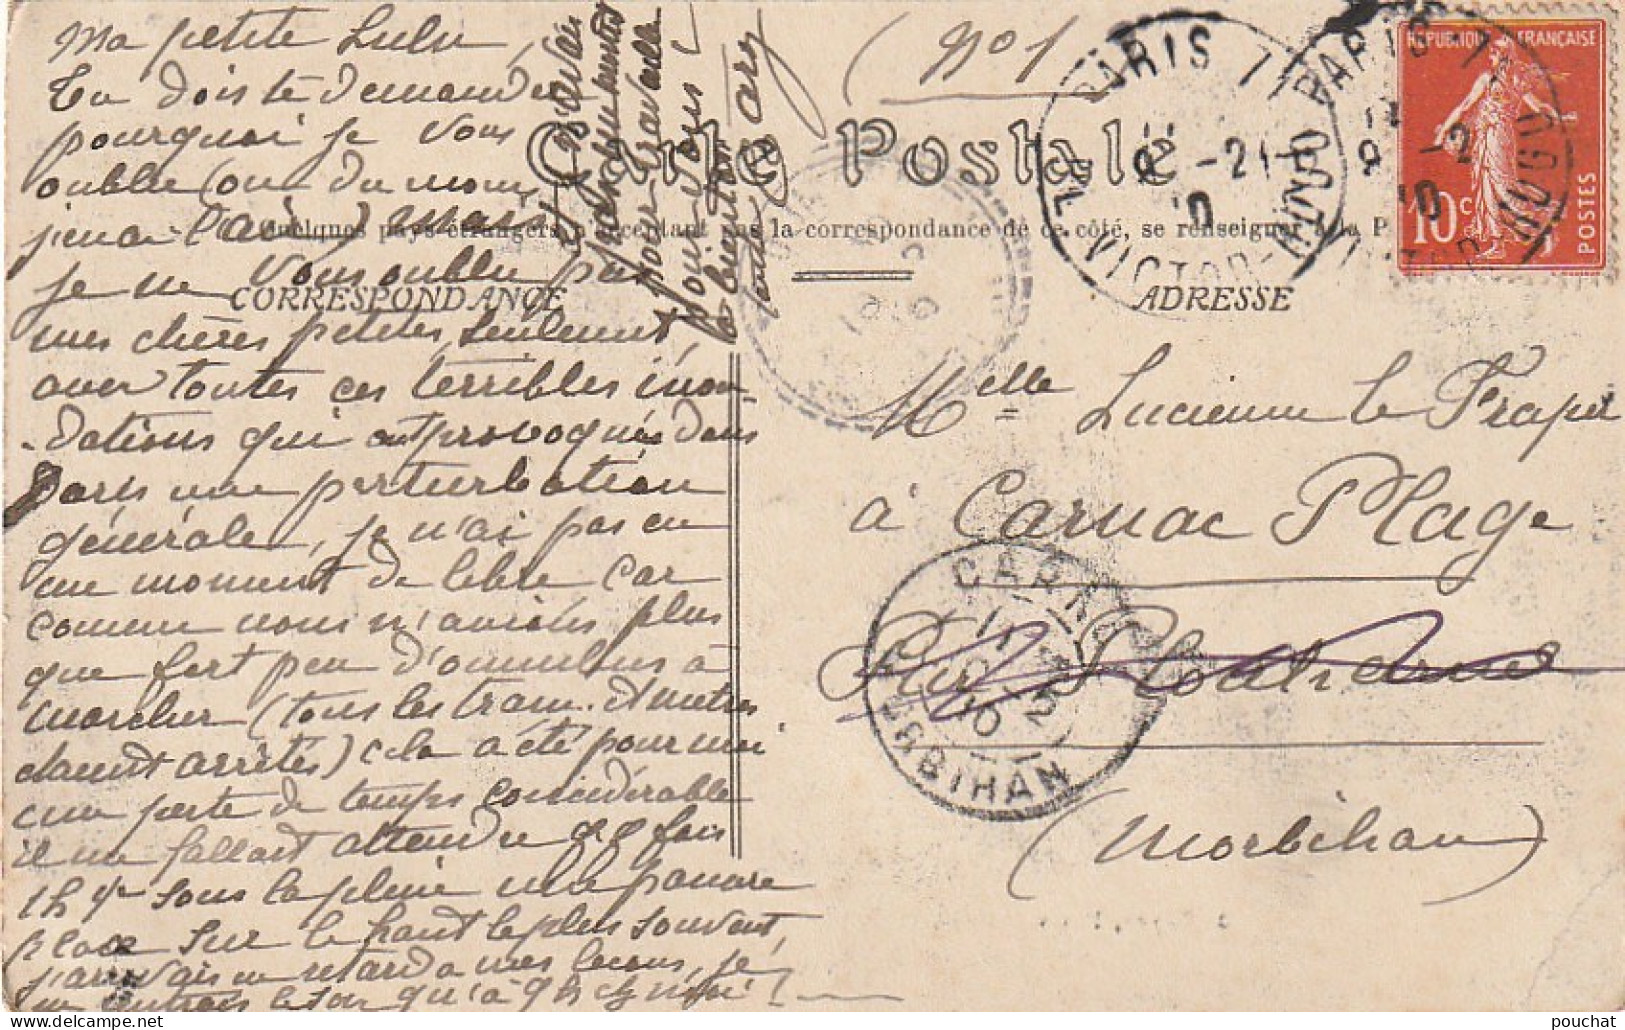 Ma petite Lulu,
Tu dois te demander
pourquoi je vous
oublie (ou du moins
j'en ai l'air) mais
je ne vous oublie pas
mes chères petites, seulement,
avec toutes ces terribles inon-
-dations qui ont provoquées dans
Paris une perturbation
générale, je n'ai pas eu
un moment de libre car
comme nous n'avions plus
que fort peu d'omnibus à
marcher (tous les tram. et métros
étaient arrêtés) cela a été pour moi
une perte de temps considérable
il me fallait attendre qq fois
1h ½ sous la pluie une pauvre
place sur le haut le plus souvent,
j'arrivais en retard à mes leçons, je
ne rentrais le soir qu'à 9h chez moi!
et j'avais
énormément
pour travailler
pour vous!
à bientôt
(No 1
Carte Postale
Quelques pays étrangers n'acceptant pas la correspondance de ce côté, se renseigner à la P
CORRESPONDANCE
ADRESSE
Melle Lucienne le Fraper
à Carnac Plage
Par Plouharnel
(Morbihan)
PARIS 7
9 -2
10
AV. VICTOR-HUGO
PARIS 7
-2
10
VICTOR-HUGO
REPUBLIQUE FRANÇAISE
10c
POSTES
CARNAC
10
MORBIHAN
pouchat